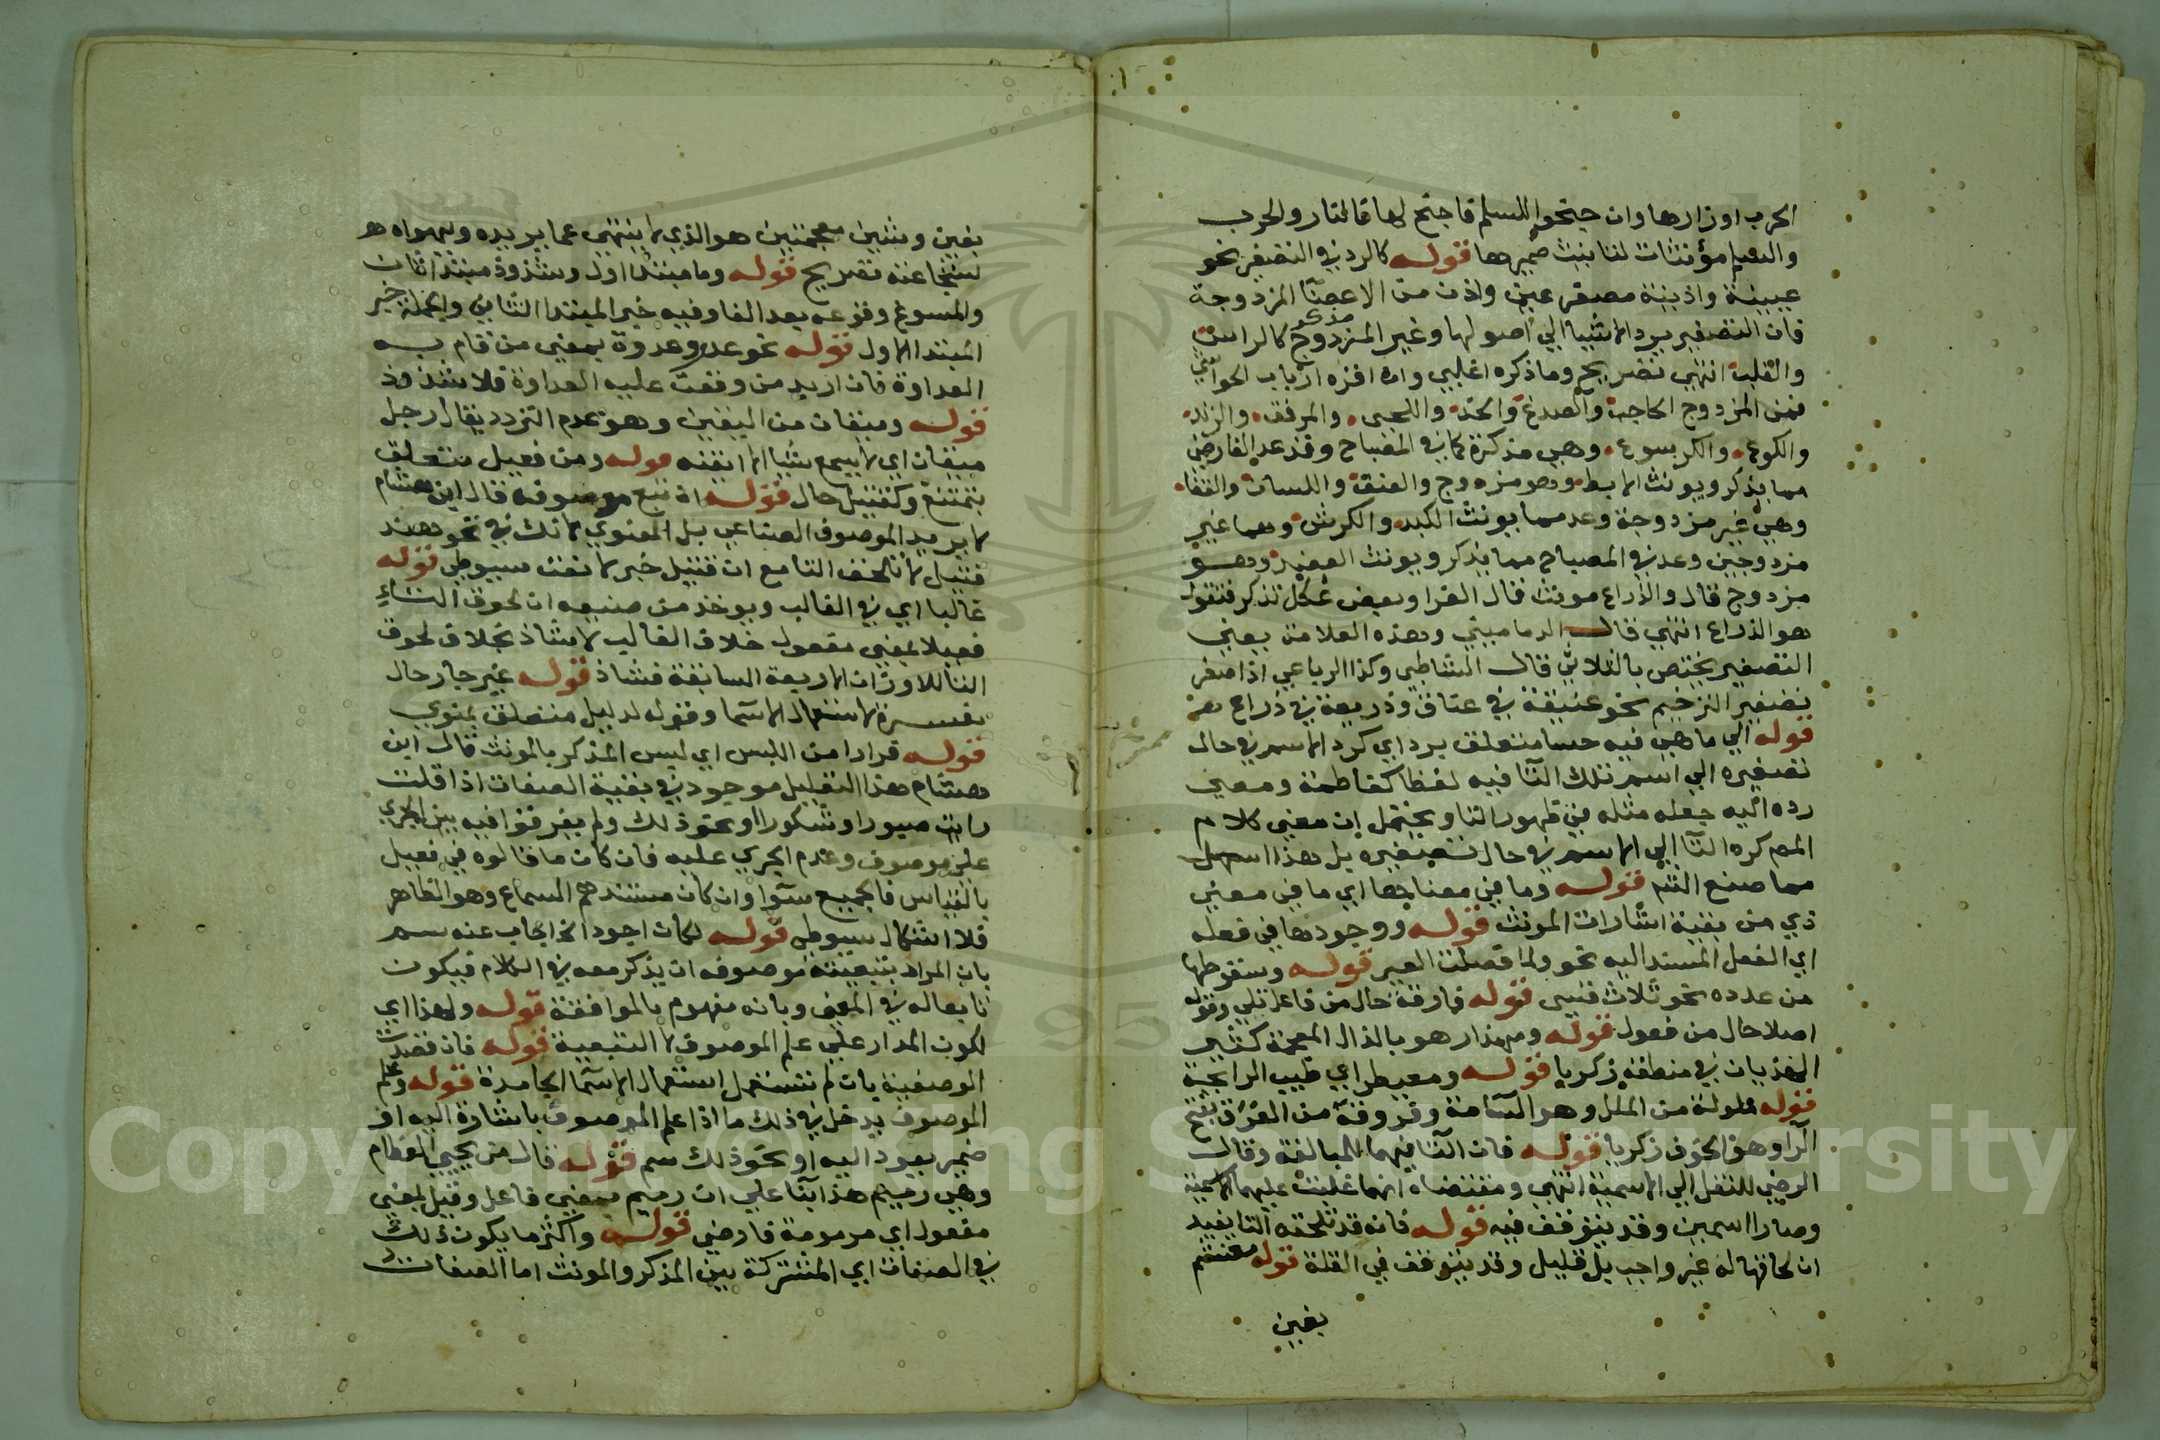 الحرب اوزارها وان جنحوا للسلم فاجنح لها فالنار والحرب
والسلم مؤنثات لتانيث ضميرها قوله كالرد في التصغير نحو
عيينة واذينة مصغر عين واذن من الاعضآ المزدوجة
فان التصغير يرد الاشيا الي اصولها وغير المزدوج مذكر كالراس
والقلب انتهى تصريح وما ذكره اغلبي وان اقره ارباب الحواشي
فمن المزدوج الحاجب والصدغ والخد واللحي والمرفق والزند
والكوع والكرسوع وهي مذكرة كما في المصباح وقد عد الفارضي
مما يذكر ويونث الابط وهو مزدوج والعنق واللسان والقفا
وهي غير مزدوجة وعد مما يونث الكبد والكرش وهما غير
مزدوجين وعد في المصباح مما يذكر ويونث وهو
مزدوج قال والذراع مونث قال الفرا وبعض عكل تذكر فتقول
هو الذراع انتهي قال الدماميني وهذه العلامة يعني
التصغير يختص بالثلاثي قال الشاطبي وكذا الرباعي اذا صغر
تصغير الترخيم نحو عنيقة في عناق وذريعة في ذراع
قوله الي ما هي فيه حسا متعلق برد اي كرد الاسم في حال
تصغيره الي اسم تلك التا فيه لفظا كفاطمة ومعني
رده اليه جعله مثله في ظهور التا ويحتمل ان معني كلام
المص كره التآ الي الاسم في حال تصغيره بل هذا اسهل
مما صنع الش قوله وما في معناها اي ما في معني
ذي من بقية اشارات المونث قوله ووجودها في فعله
اي الفعل المسند اليه نحو ولما فصلت العير قوله وسقوطها
من عدده نحو ثلاث قسي قوله فارقة حال من فاعل تلي وقوله
اصلا حال من فعول قوله ومهذار هو بالذال المعجمة كثير
الهذيان في منطقه زكريا قوله ومعطير اي طيب الرايحة
قوله ملولة من الملل وهو السآمة وفروقة من الفرق بفتح
الرآ وهو الخوف زكريا قوله فان التا فيهما للمبالغة وقال
الرضي للنقل الي الاسمية انتهي ومقتضاه انهما غلبت عليهما الاسمية
وصارا اسمين وقد يتوقف فيه قوله فانه قد تلحقه التا يفيد
ان لحاقها له غير واجب بل قليل وقد يتوقف في القلة قوله مغشم
بغين
بغين وشين معجمتين هو الذي لا ينتهي عما يريده ويهواه
عنه تصريح قوله وما مبتدا اول وشذوذ مبتدا ثان
والمسوغ وقوعه بعد الفا وفيه خبر المبتدا الثاني والجملة خبر
المبتدا الاول قوله نحو عدو وعدوة بمعني من قام به
العداوة فان اريد من وقعت عليه العداوة فلا شذوذ
قوله وميقان من اليقين وهو عدم التردد يقال رجل
ميقان اي لا يسمع شيا الا ايقنه قوله ومن فعيل متعلق
بتمتنع وكقتيل حال قوله ان تبع موصوفه قال ابن هشام
لا يريد الموصوف الصناعي بل المعنوي لانك في نحو هند
قتيل لا تلحق التا مع ان قتيل خبر لا نعت سيوطي قوله
غالبا اي في الغالب ويوخذ من صنيعه ان لحوق التاء
فعيلا بمعني مفعول خلاف الغالب لا شاذ بخلاف لحوق
التا للاوزان الاربعة السابقة فشاذ قوله غير جار حال
لاستعمال الاسما وقوله لدليل متعلق بمنوي
قوله فرارا من اللبس اي لبس المذكر بالمونث قال ابن
هشام هذا التعليل موجود في بقية الصفات اذا قلت
رايت صبورا وشكورا او نحو ذلك ولم يفرقوا فيه بين الجري
علي موصوف وعدم الجري عليه فان كان ما قالوه في فعيل
بالقياس فالجميع سوآ وان كان مستندهم السماع وهو الظاهر
فلا اشكال سيوطي قوله لكان اجود الخ اجاب عنه سم
بان المراد بتبعيته موصوفه ان يذكر معه في الكلام فيكون
تابعا له في المعني وبانه مفهوم بالموافقة قوله ولهذا اي
لكون المدار علي علم الموصوف لا التبعية قوله فان قصدت
الوصفية بان لم تستعمل استعمال الاسما الجامدة قوله وعلم
الموصوف يدخل في ذلك ما اذا علم الموصوف باشارة اليه او
ضمير يعود اليه او نحو ذلك سم قوله قال من يحيي العظام
وهي رميم هذا بنآ علي ان رميم بمعني فاعل وقيل بمعني
مفعول اي مرمومة فارضي قوله واكثر ما يكون ذلك
في الصفات اي المشتركة بين المذكر والمونث اما الصفات
Copyright © King Saud University
195